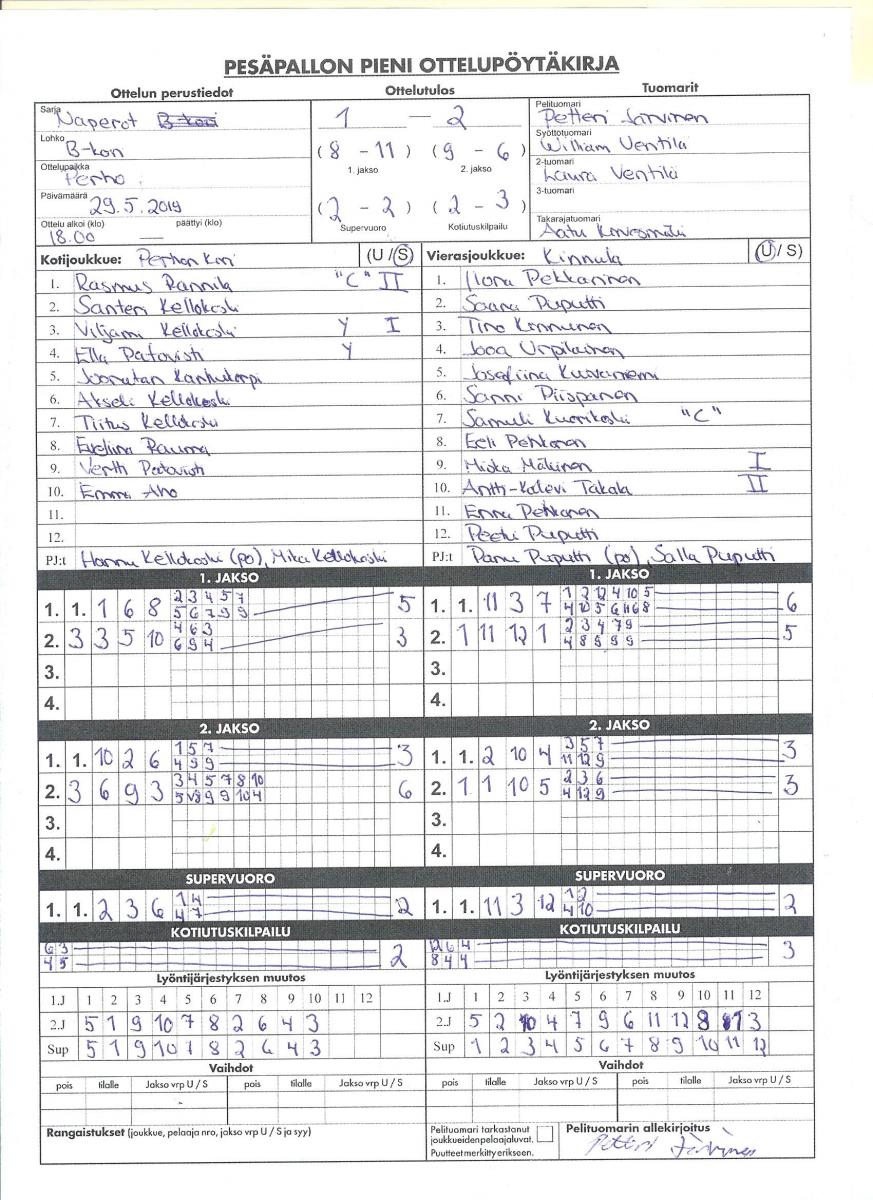 PESÄPALLON PIENI OTTELUPÖYTÄKIRJA
Ottelun perustiedot Ottelutulos Tuomarit
Sarja Naperot 1 — 2 Pelituomari Petteri Järvinen
Lohko B-kon (8 - 11) (9 - 6) Syöttötuomari William Ventilä
1. jakso 2. jakso
Ottelupaikka Perho 2-tuomari Laura Ventilä
Päivämäärä 29.5.2019 (2 - 2) (2 - 3) 3-tuomari
Supervuoro Kotiutuskilpailu
Ottelu alkoi (klo) päättyi (klo) Takarajatuomari
18.00 — Aatu
Kotijoukkue: Perhon Kiri (U / S) Vierasjoukkue: Kinnula (U / S)
1. Rasmus Rannila "C" II 1. Ilona Pekkarinen
2. Santeri Kellokoski 2. Saana Puputti
3. Viljami Kellokoski Y I 3. Tino Kinnunen
4. Ella Patovisti Y 4. Jooa Urpilainen
5. Joonatan 5. Josefiina Kuivaniemi
6. Akseli Kellokoski 6. Sanni Piispanen
7. Tiitus Kellokoski 7. Samuli Kuorikoski "C"
8. Eveliina Rauma 8. Eeli Pehkonen
9. Verth Patovisti 9. Miska Mäkinen I
10. Emma Aho 10. Antti-Kalevi Takala II
11. 11. Enna Pehkonen
12. 12. Peetu Puputti
PJ:t Hannu Kellokoski (po), Mika Kellokoski PJ:t Panu Puputti (po), Salla Puputti
1. JAKSO 1. JAKSO
1. 1. 1 6 8 2 3 4 5 7 5 1. 1. 11 3 7 1 2 12 4 10 5 6
5 6 7 9 9 4 10 5 6 11 6 8
2. 3 3 5 10 4 6 3 3 2. 1 11 12 1 2 3 4 7 9 5
6 9 4 4 8 9 9 9
3. 3.
4. 4.
2. JAKSO 2. JAKSO
1. 1. 10 2 6 1 5 7 3 1. 1. 2 10 4 3 5 7 3
4 9 9 11 12 9
2. 3 6 9 3 3 4 5 7 8 10 6 2. 1 1 10 5 2 3 6 3
5 8 9 9 10 4 4 12 9
3. 3.
4. 4.
SUPERVUORO SUPERVUORO
1. 1. 2 3 6 1 4 2 1. 1. 11 3 12 1 2 2
4 7 4 10
KOTIUTUSKILPAILU KOTIUTUSKILPAILU
6 3 2 12 6 4 3
4 5 8 4 4
Lyöntijärjestyksen muutos Lyöntijärjestyksen muutos
1.J 1 2 3 4 5 6 7 8 9 10 11 12 1.J 1 2 3 4 5 6 7 8 9 10 11 12
2.J 5 1 9 10 7 8 2 6 4 3 2.J 5 2 10 4 7 9 6 11 12 8 1 3
Sup 5 1 9 10 7 8 2 6 4 3 Sup 1 2 3 4 5 6 7 8 9 10 11 12
Vaihdot Vaihdot
pois tilalle Jakso vrp U / S pois tilalle Jakso vrp U / S pois tilalle Jakso vrp U / S pois tilalle Jakso vrp U / S
Rangaistukset (joukkue, pelaaja nro, jakso vrp U / S ja syy) Pelituomari tarkastanut Pelituomarin allekirjoitus
joukkueidenpelaajaluvat.
Puutteetmerkittyerikseen. Petteri Järvinen